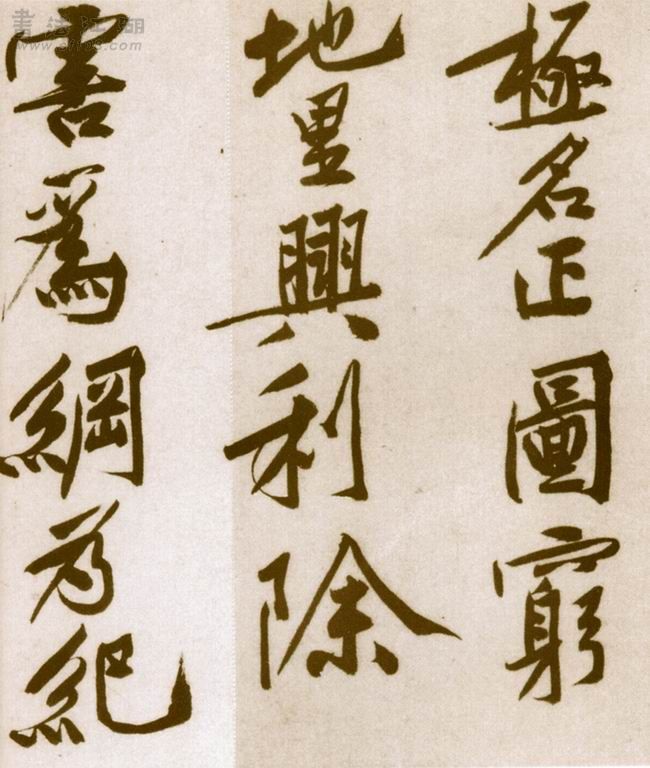 極名正圖窮
地里興利除
害爲綱為紀
書法江湖
www.sf108.com